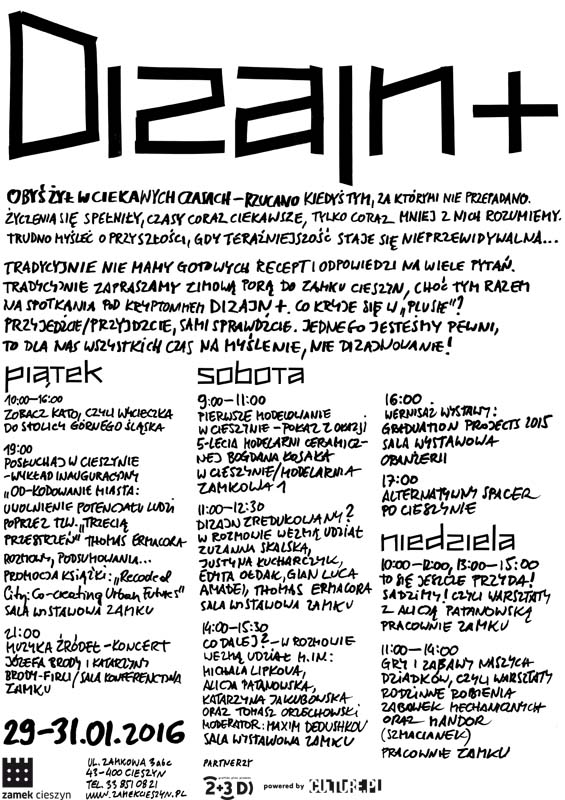 DIZAJN+
OBYŚ ŻYŁ W CIEKAWYCH CZASACH – RZUCANO KIEDYŚ TYM, ZA KTÓRYMI NIE PRZEPADANO.
ŻYCZENIA SIĘ SPEŁNIŁY, CZASY CORAZ CIEKAWSZE, TYLKO CORAZ MNIEJ Z NICH ROZUMIEMY.
TRUDNO MYŚLEĆ O PRZYSZŁOŚCI, GDY TERAŹNIEJSZOŚĆ STAJE SIĘ NIEPRZEWIDYWALNA...
TRADYCYJNIE NIE MAMY GOTOWYCH RECEPT I ODPOWIEDZI NA WIELE PYTAŃ.
TRADYCYJNIE ZAPRASZAMY ZIMOWĄ PORĄ DO ZAMKU CIESZYN, CHOĆ TYM RAZEM
NA SPOTKANIA POD KRYPTONIMEM DIZAJN+. CO KRYJE SIĘ W „PLUSIE"?
PRZYJEDŹCIE/PRZYJDŹCIE, SAMI SPRAWDŹCIE. JEDNEGO JESTEŚMY PEWNI,
TO DLA NAS WSZYSTKICH CZAS NA MYŚLENIE, NIE DIZAJNOWANIE!
piątek
10:00–16:00
ZOBACZ KATO, CZYLI WYCIECZKA
DO STOLICY GÓRNEGO ŚLĄSKA
19:00
POSŁUCHAJ W CIESZYNIE
– WYKŁAD INAUGURACYJNY
„OD-KODOWANIE MIASTA:
UWOLNIENIE POTENCJAŁU LUDZI
POPRZEZ TZW. „TRZECIĄ
PRZESTRZEŃ" THOMAS ERMACORA
ROZMOWY, PODSUMOWANIA...
PROMOCJA KSIĄŻKI: „Recoded
City: Co-creating Urban Futures"
SALA WYSTAWOWA ZAMKU
21:00
MUZYKA ŹRÓDEŁ – KONCERT
JÓZEFA BRODY I KATARZYNY
BRODY-FIRLI / SALA KONFERENCYJNA
ZAMKU
sobota
9:00–11:00
PIERWSZE MODELOWANIE
W CIESZYNIE – POKAZ Z OKAZJI
5-LECIA MODELARNI CERAMICZ-
NEJ BOGDANA KOSAKA
W CIESZYNIE/MODELARNIA
ZAMKOWA 1
11:00–12:30
DIZAJN ZREDUKOWANY?
W ROZMOWIE WEZMĄ UDZIAŁ
ZUZANNA SKALSKA,
JUSTYNA KUCHARCZYK,
EDYTA OŁDAK, GIAN LUCA
AMADEI, THOMAS ERMACORA
SALA WYSTAWOWA ZAMKU
14:00–15:30
CO DALEJ? – W ROZMOWIE
WEZMĄ UDZIAŁ M.IN.:
MICHALA LIPKOVA,
ALICJA PATANOWSKA,
KATARZYNA JAKUBOWSKA
ORAZ TOMASZ ORZECHOWSKI
MODERATOR: MAXIM DEDUSHKOV
SALA WYSTAWOWA ZAMKU
16:00
WERNISAŻ WYSTAWY:
GRADUATION PROJECTS 2015
SALA WYSTAWOWA
ORANŻERII
17:00
ALTERNATYWNY SPACER
PO CIESZYNIE
niedziela
10:00–12:00, 13:00–15:00
TO SIĘ JESZCZE PRZYDA!
SADZIMY! CZYLI WARSZTATY
Z ALICJĄ PATANOWSKĄ
PRACOWNIE ZAMKU
11:00–14:00
GRY I ZABAWY NASZYCH
DZIADKÓW, CZYLI WARSZTATY
RODZINNE ROBIENIA
ZABAWEK MECHANICZNYCH
ORAZ HANDOR
(SZMACIANEK)
PRACOWNIE ZAMKU
29–31.01.2016
zamek cieszyn
UL. ZAMKOWA 3abc
43-400 CIESZYN
TEL. 33 851 08 21
WWW.ZAMEKCIESZYN.PL
PARTNERZY
2+3D
powered by CULTURE.PL